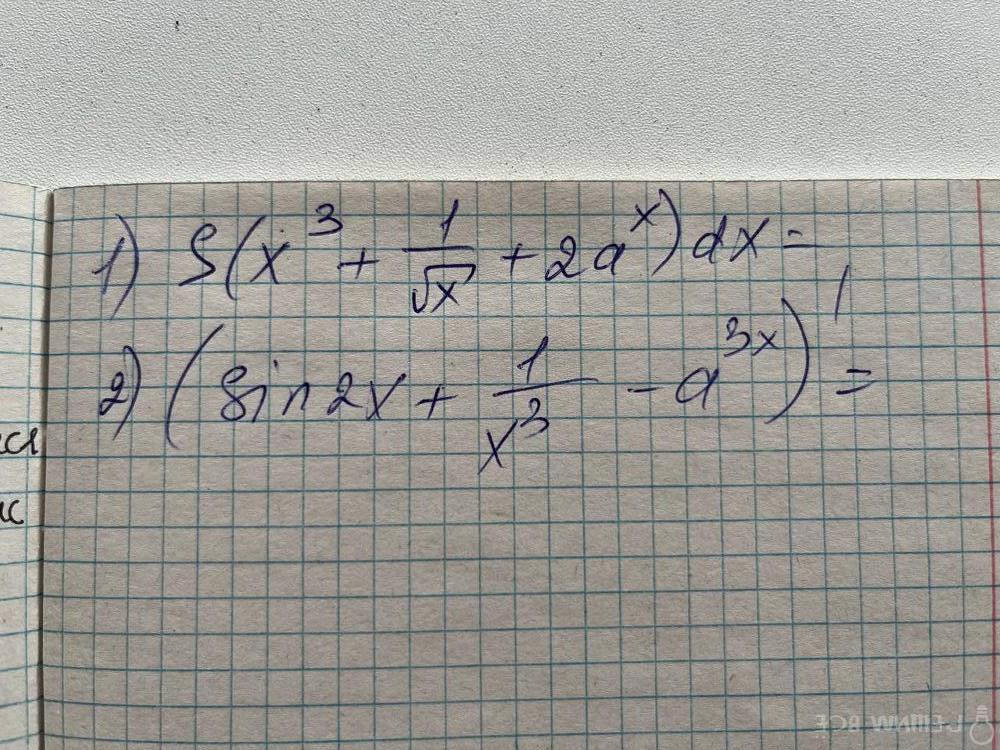 1) ∫(x³ + 1/√x + 2aˣ)dx =
2) (sin2x + 1/x³ - a³ˣ)' =
ся